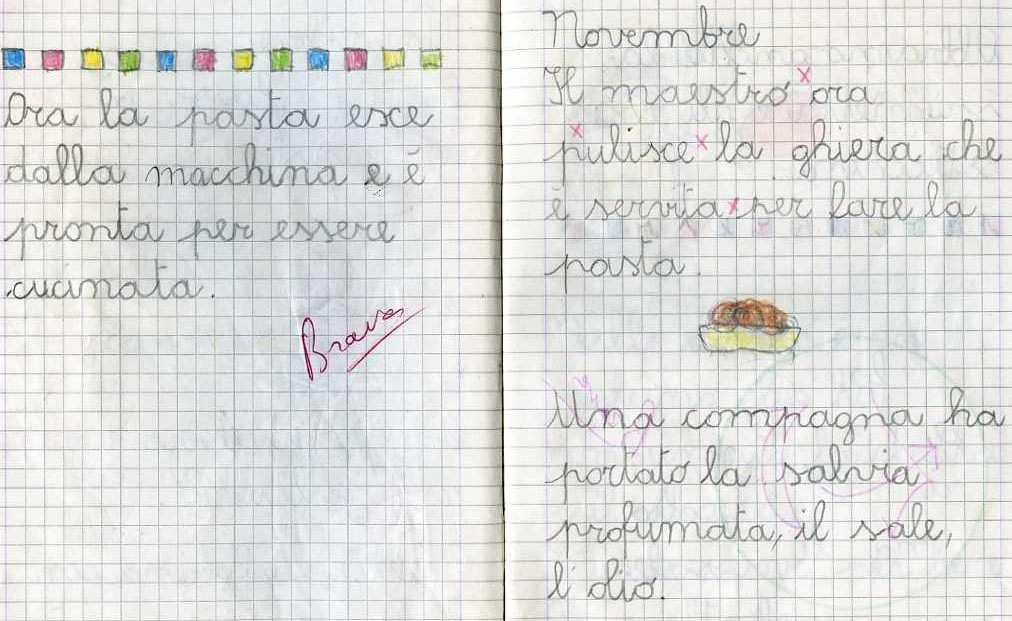 Ora la pasta esce
dalla macchina e è
pronta per essere
cucinata.
Brava
Novembre
Il maestro ora
pulisce la ghiera che
è servita per fare la
pasta.
Una compagna ha
portato la salvia
profumata, il sale,
l'olio.